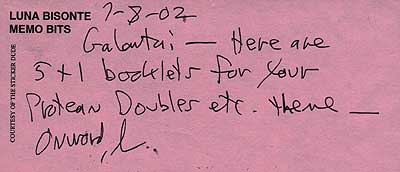 LUNA BISONTE
MEMO BITS
COURTESY OF THE STICKER DUDE
7-8-02
Galantai — Here are
5+1 booklets for your
Protean Doubles etc. theme —
Onword, L.